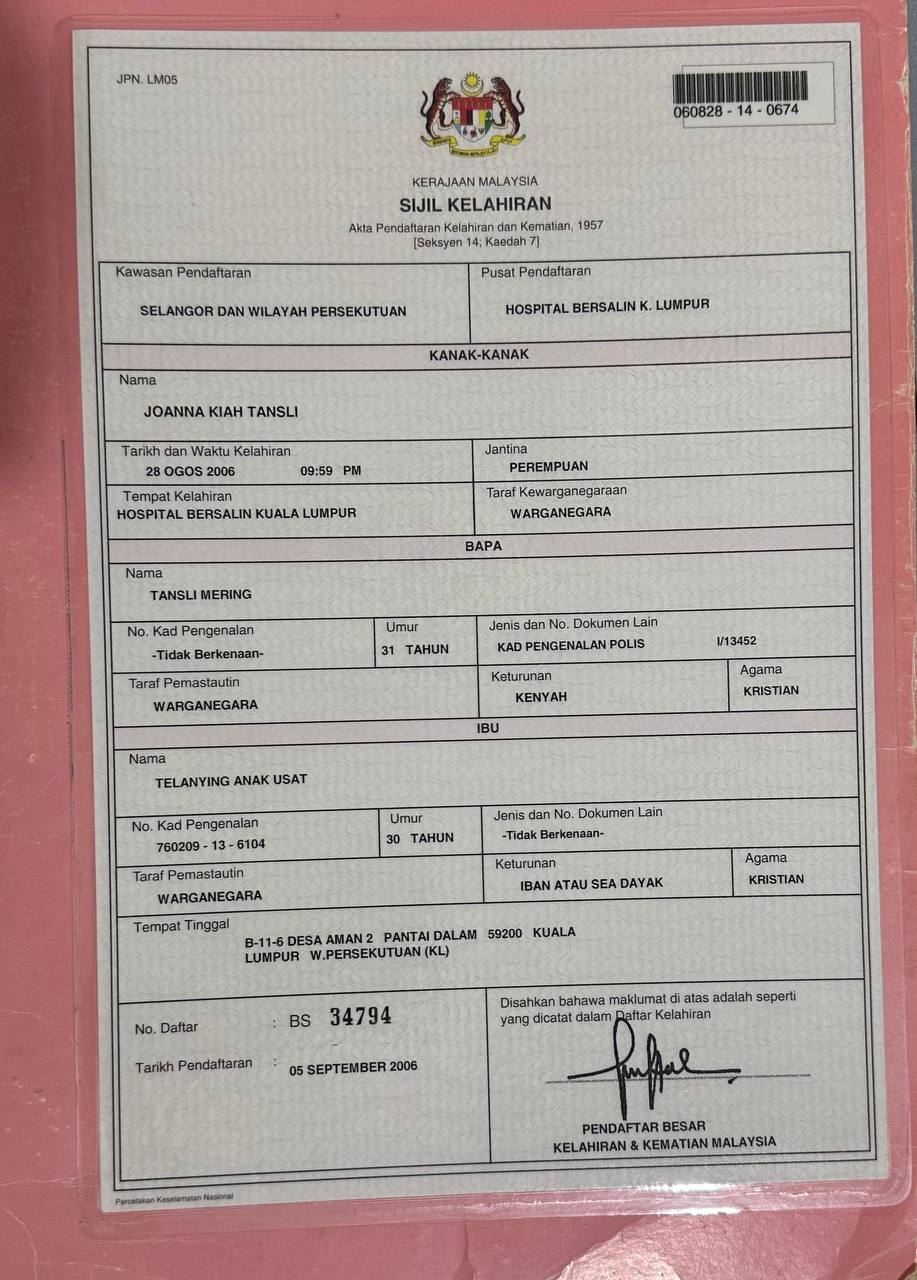 JPN. LM05
060828 - 14 - 0674
KERAJAAN MALAYSIA
SIJIL KELAHIRAN
Akta Pendaftaran Kelahiran dan Kematian, 1957
[Seksyen 14; Kaedah 7]
Kawasan Pendaftaran
SELANGOR DAN WILAYAH PERSEKUTUAN
Pusat Pendaftaran
HOSPITAL BERSALIN K. LUMPUR
KANAK-KANAK
Nama
JOANNA KIAH TANSLI
Tarikh dan Waktu Kelahiran
28 OGOS 2006 09:59 PM
Jantina
PEREMPUAN
Tempat Kelahiran
HOSPITAL BERSALIN KUALA LUMPUR
Taraf Kewarganegaraan
WARGANEGARA
BAPA
Nama
TANSLI MERING
No. Kad Pengenalan
-Tidak Berkenaan-
Umur
31 TAHUN
Jenis dan No. Dokumen Lain
KAD PENGENALAN POLIS I/13452
Taraf Pemastautin
WARGANEGARA
Keturunan
KENYAH
Agama
KRISTIAN
IBU
Nama
TELANYING ANAK USAT
No. Kad Pengenalan
760209 - 13 - 6104
Umur
30 TAHUN
Jenis dan No. Dokumen Lain
-Tidak Berkenaan-
Taraf Pemastautin
WARGANEGARA
Keturunan
IBAN ATAU SEA DAYAK
Agama
KRISTIAN
Tempat Tinggal
B-11-6 DESA AMAN 2 PANTAI DALAM 59200 KUALA
LUMPUR W.PERSEKUTUAN (KL)
No. Daftar : BS 34794
Tarikh Pendaftaran : 05 SEPTEMBER 2006
Disahkan bahawa maklumat di atas adalah seperti
yang dicatat dalam Daftar Kelahiran
PENDAFTAR BESAR
KELAHIRAN & KEMATIAN MALAYSIA
Percetakan Keselamatan Nasional